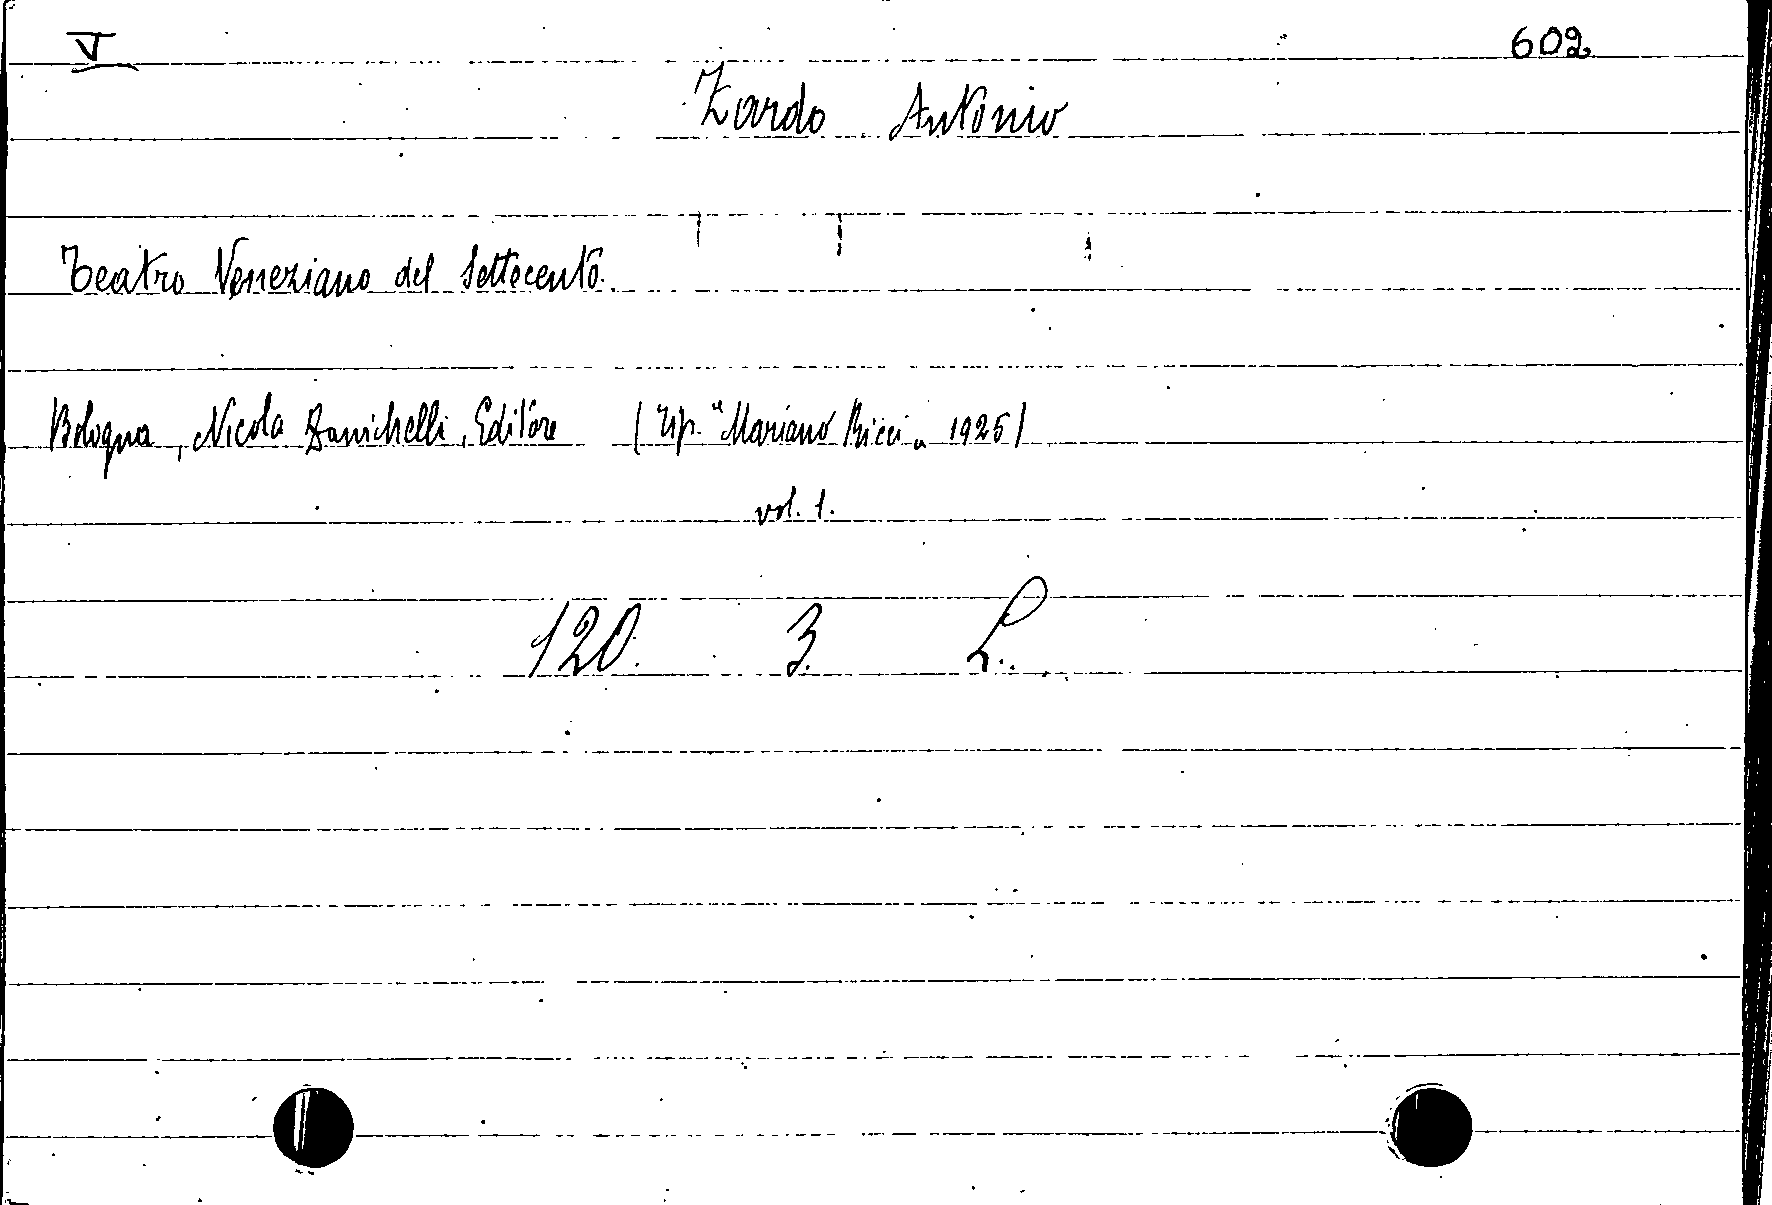 V 602
Zardo Antonio
Teatro Veneziano del Settecento.
Bologna, Nicola Zanichelli, Editore (Tip. "Mariano Ricci" 1925)
vol. 1.
120. 3. L.